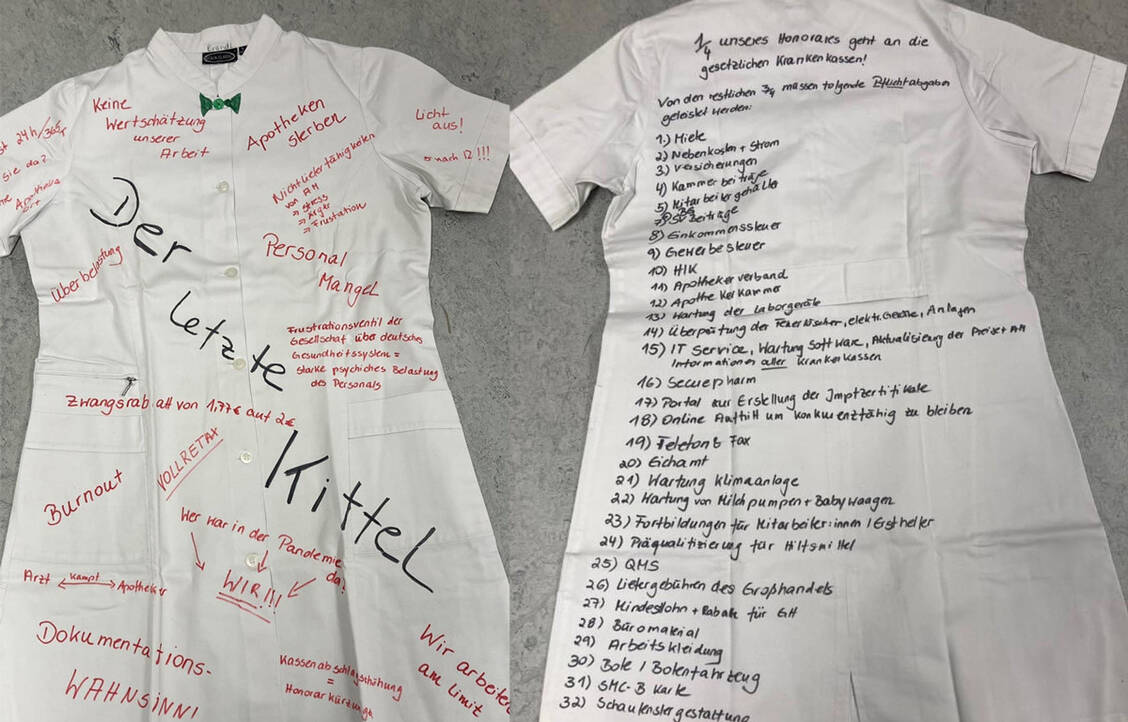 Keine
Wertschätzung
unserer
Arbeit
Apotheken
sterben
Licht
aus!
er nach 12 !!!
24h/365
sie da?
Apotheke
ort
Nichtlieferfähigkeiten
von AM
⇒ Stress
⇒ Ärger
⇒ Frustration
Der
letzte
Kittel
Überbelastung
Personal
Mangel
Frustrationsventil der
Gesellschaft über deutsches
Gesundheitssystem =
starke psychiches Belastung
des Personals
Zwangsrabatt von 1,77€ auf 2€
VOLLRETAX
Burnout
Wer war in der Pandemie
da?
WIR!!!
Arzt ⟷ Kampf Apotheker
Dokumentations-
WAHNSINN!
Kassenabschlagserhöhung
=
Honorarkürzung
Wir arbeiten
am Limit
1/4 unseres Honorares geht an die
gesetzlichen Krankenkassen!
Von den restlichen 3/4 müssen folgende Pflichtabgaben
geleistet werden:
1.) Miete
2) Nebenkosten + Strom
3) Versicherungen
4) Kammerbeiträge
5) Mitarbeitergehälter
7) SV Beiträge
8) Einkommenssteuer
9) Gewerbesteuer
10) HIK
11) Apothekerverband
12) Apothekerkammer
13) Wartung der Laborgeräte
14) Überprüfung der Feuerlöscher, elektr. Geräte, Anlagen
15) IT Service, Wartung Software, Aktualisierung der Preise + AM
Informationen aller Krankenkassen
16) Secuepharm
17) Portal zur Erstellung der Impfzertifikate
18) Online Auftritt um konkurenzfähig zu bleiben
19) Telefon & Fax
20) Eichamt
21) Wartung Klimaanlage
22) Wartung von Milchpumpen + Babywaagen
23) Fortbildungen für Mitarbeiter:innen / Ersthelfer
24) Präqualifizierung für Hilfsmittel
25) QMS
26) Liefergebühren des Großhandels
27) Mindestlohn + Rabatte für GH
28) Büromaterial
29) Arbeitskleidung
30) Bote / Botenfahrzeug
31) SMC-B Karte
32) Schaufenstergestaltung